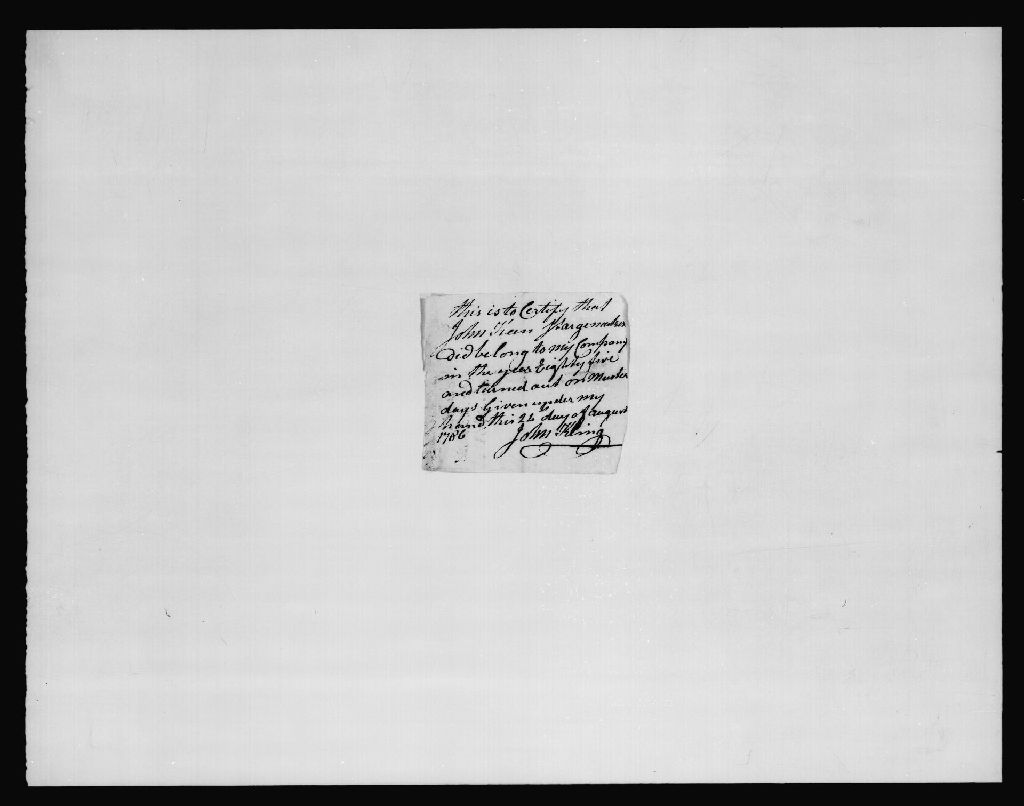 this is to Certify that
John Kean
did belong to my Company
in the year Eighty five
and turned out on Muster
days Given under my
hand this day of august
1786 John Kling